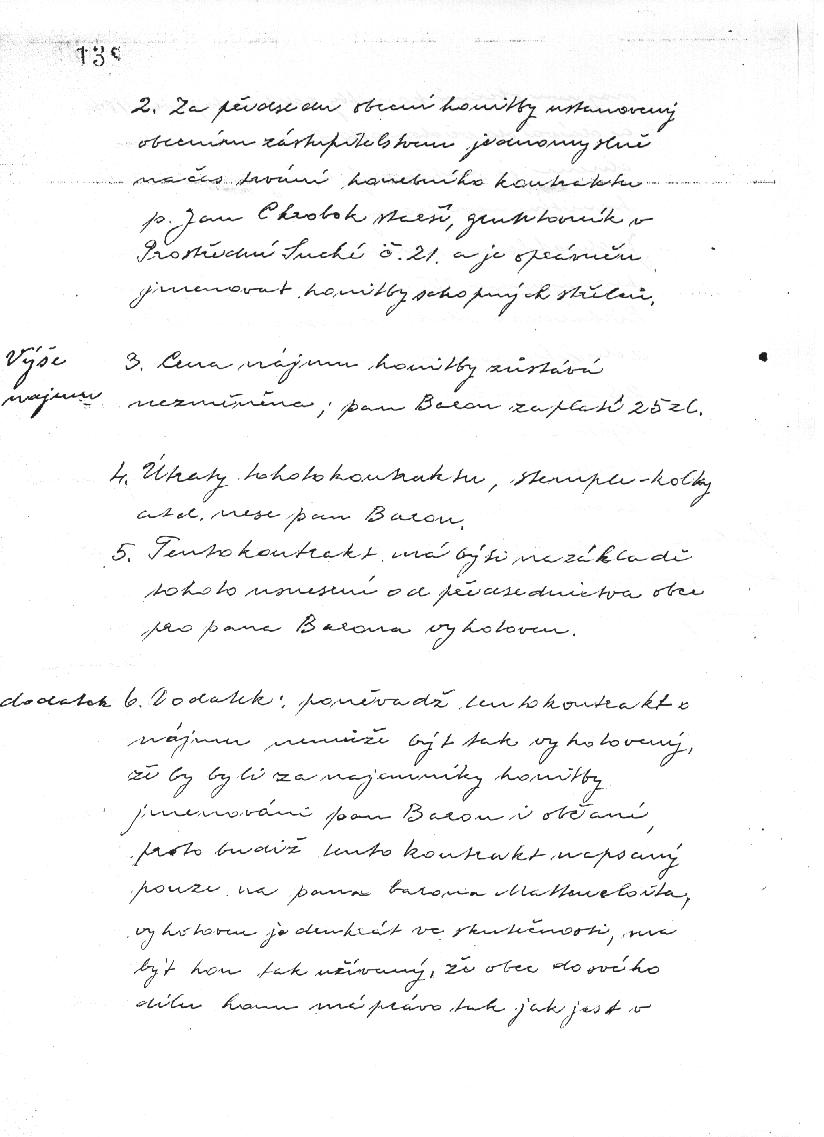 139
2. Za předsedu obecní honitby ustanovený
obecním zástupitelstvem jednomyslně
na čas trvání honebního kontraktu
p. Jan Chrobok starší, gruntovník v
Prostřední Suché č. 21. a je oprávněn
jmenovat honitby schopných střelců.
Výše
najmu
3. Cena nájmu honitby zůstává
nezměněna; pan Baron zaplatí 25 zl.
4. Útraty tohoto kontraktu, stemple-kolky
atd. nese pan Baron.
5. Tento kontrakt má býti na základě
tohoto usnesení od předsednictva obce
pro pana Barona vyhotoven.
dodatek
6. Dodatek: poněvadž tento kontrakt o
nájmu nemůže být tak vyhotovený,
že by byli za najemníky honitby
jmenováni pan Baron i občané,
proto budiž tento kontrakt napsaný
pouze na pana barona Mattencloita,
vyhotoven jedenkrát ve skutečnosti, ma
být hon tak užívaný, že obec do svého
dílu honu má právo tak jak jest v